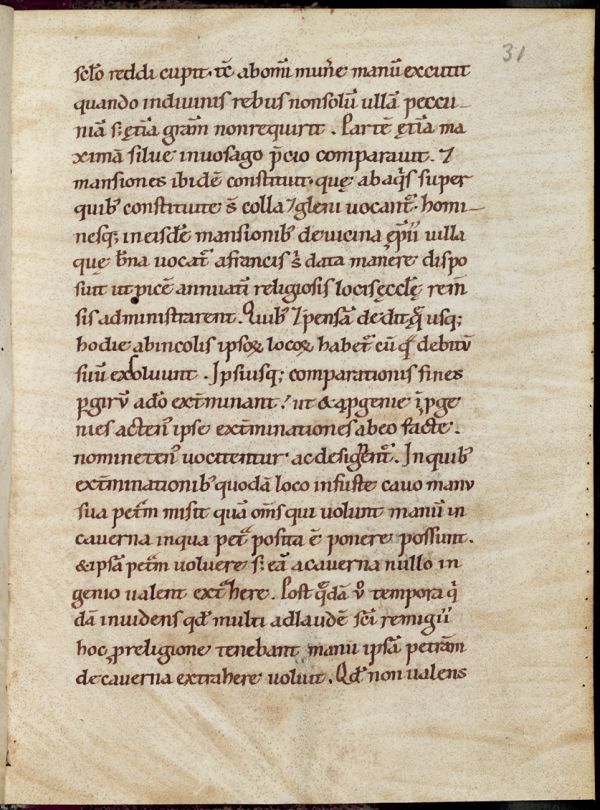 31
sc̄lo reddi cupit· tc̄ ab om̄i mun̄e manū excutit
quando in diuinis rebus non solū ullā peccu-
niā s; ętiā gratm̄ non requirit . Partē ętiā ma
ximā siluę in uosago p̄cio comparauit . ⁊
mansiones ibidē constituit· quę ab aq̄s super
quib; constitutę s̄ colla ⁊ gleni uocant᷑· homi-
nesq; in eisdē mansionib; de uicina ęp̄ii uilla
quę b̄na uocat᷑ a francis s̄ data man̄ere dispo
suit ut picē annuatī religiosis locis ęcclę̄ rem̄
sis administrarent . Quib; ⁊ pensā dedit q̄ usq;
hodie ab incolis ipsoꝝ locoꝝ habet᷑ cū q̄ debitū
suū exsoluunt . Ipsiusq; comparationis fines
ꝑ girū adeo ext̄minauit ut & a ꝓgenie ī ꝓge
nies acten᷒ ipsę ext̄minationes ab eo factę .
nomineten᷒ uocitentur ac designent᷑ . In quib;
ext̄minationib; quodā loco in fuste cauo manu
sua petrā misit quā om̄s qui uolunt manū in
cauerna in qua petra posita ē ponere possunt .
& ipsā petrā uoluere s; eā a cauerna nullo in
genio ualent ext᷑here . Post q̄dā u̅ tempora q̇
dā inuidens qđ multi ad laudē sc̄i remigii
hoc ꝓ religione tenebant manū ipsā petram
de cauerna extrahere uoluit . Qđ non ualens